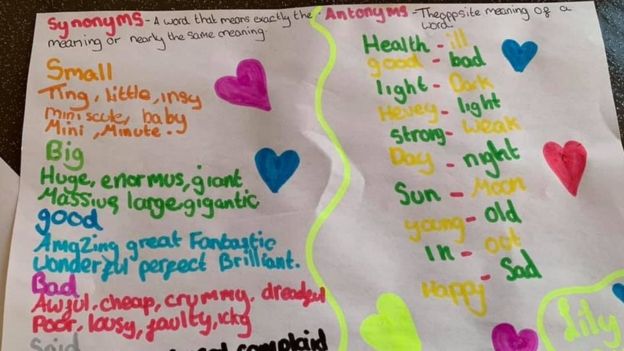 Synonyms - A word that means exactly the
meaning or nearly the same meaning.
Small
Ting, little, insy
miniscule, baby
Mini, Minute.
Big
Huge, enormus, giant
Massive large gigantic
good
Amazing great Fantastic
Wonderful perfect Brilliant.
Bad
Awful, cheap, crummy. dreadful
Poor, lousy, faulty, icky
Said
complaid
Antonyms - The oppsite meaning of a
word.
Health - ill
good - bad
light - Dark
Hevey - light
strong - weak
Day - night
Sun - Moon
young - old
In - oot
Happy - Sad
Lily